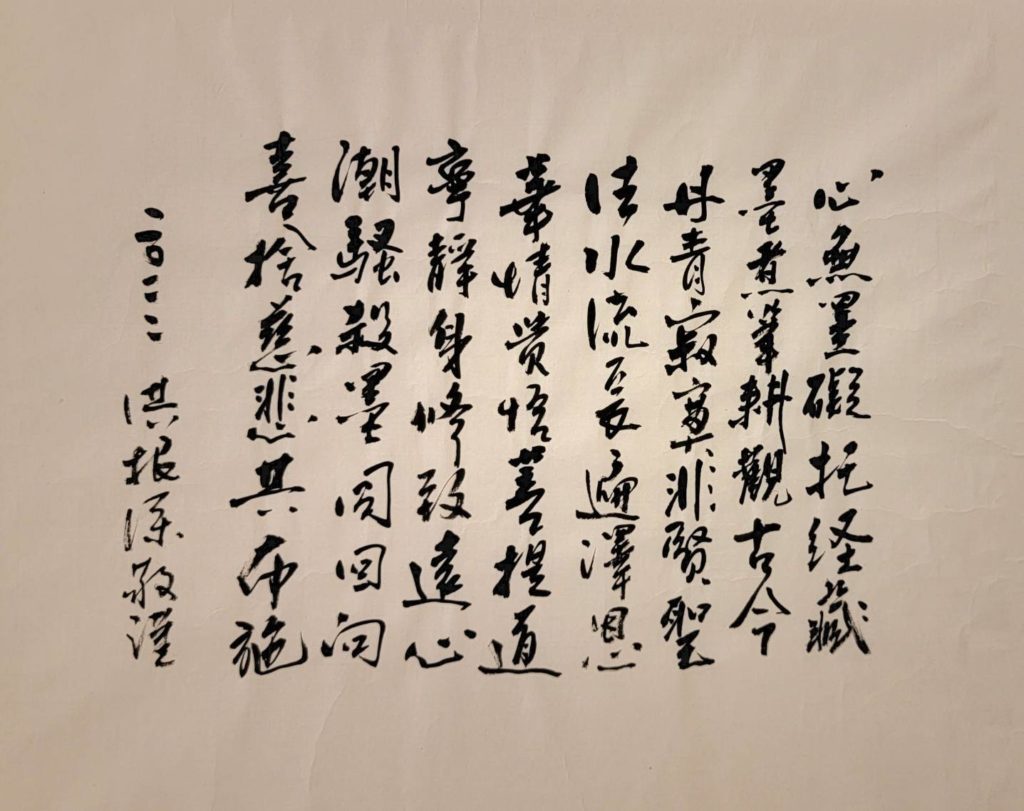 心無墨礙托経藏
墨煮筆耕觀古今
丹青寂寞非賢聖
法水流長遍澤恩
華情賞悟菩提道
寧靜身修致遠心
潮騷殺墨同回向
喜捨慈悲共布施
二〇二二 洪根深敬謹